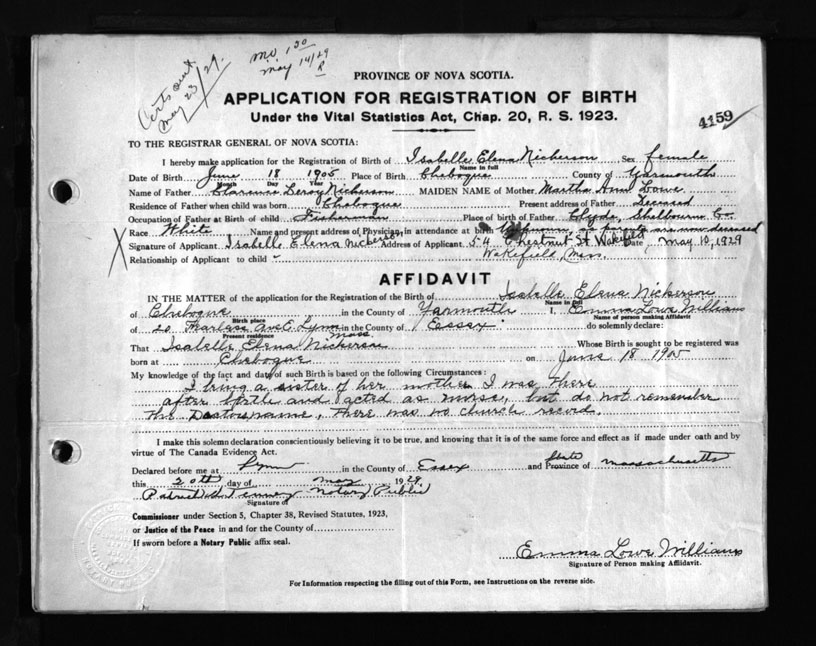 Certs sent
May 23/29.
MO 1 50
May 14/29
R
PROVINCE OF NOVA SCOTIA.
APPLICATION FOR REGISTRATION OF BIRTH
Under the Vital Statistics Act, Chap. 20, R. S. 1923.
4159
TO THE REGISTRAR GENERAL OF NOVA SCOTIA:
I hereby make application for the Registration of Birth of Isabelle Elena Nickerson Sex female
Name in full
Date of Birth June 18 1905 Place of Birth Chebogue County of Yarmouth
Month Day Year
Name of Father Clarance Leroy Nickerson MAIDEN NAME of Mother Martha Ann Lowe
Residence of Father when child was born Chebogue Present address of Father Deceased
Occupation of Father at Birth of child Fisherman Place of birth of Father Clyde, Shelbourne Co.
Race White Name and present address of Physician in attendance at birth Unknown, as parents are now deceased
Signature of Applicant Isabelle Elena Nickerson Address of Applicant 54 Chestnut St Wakefield Date May 10, 1929
Relationship of Applicant to child - Wakefield, Mass.
AFFIDAVIT
IN THE MATTER of the application for the Registration of the Birth of Isabelle Elena Nickerson
Name in full
of Chebogue in the County of Yarmouth I, Emma Lowe Williams
Birth place Name of person making Affidavit
of 20 Ave E Lynn Mass in the County of Essex do solemnly declare:
Present residence
That Isabelle Elena Nickerson Whose Birth is sought to be registered was
born at Chebogue on June 18 1905
My knowledge of the fact and date of such Birth is based on the following Circumstances:
I being a sister of her mother I was there
after birth and acted as nurse, but do not remember
the Doctors name, there was no church record.
I make this solemn declaration conscientiously believing it to be true, and knowing that it is of the same force and effect as if made under oath and by
virtue of The Canada Evidence Act.
Declared before me at Lynn in the County of Essex and State Province of Massachusetts
this 20th day of May 1929
Notary Public
Signature of
Commissioner under Section 5, Chapter 38, Revised Statutes, 1923,
or Justice of the Peace in and for the County of
If sworn before a Notary Public affix seal.
Emma Lowe Williams
Signature of Person making Affidavit.
For Information respecting the filling out of this Form, see Instructions on the reverse side.